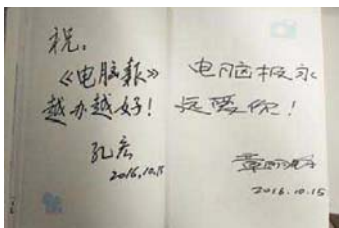 祝，
《电脑报》
越办越好！
孔宏
2016.10.15
电脑报永
远爱你！
2016.10.15